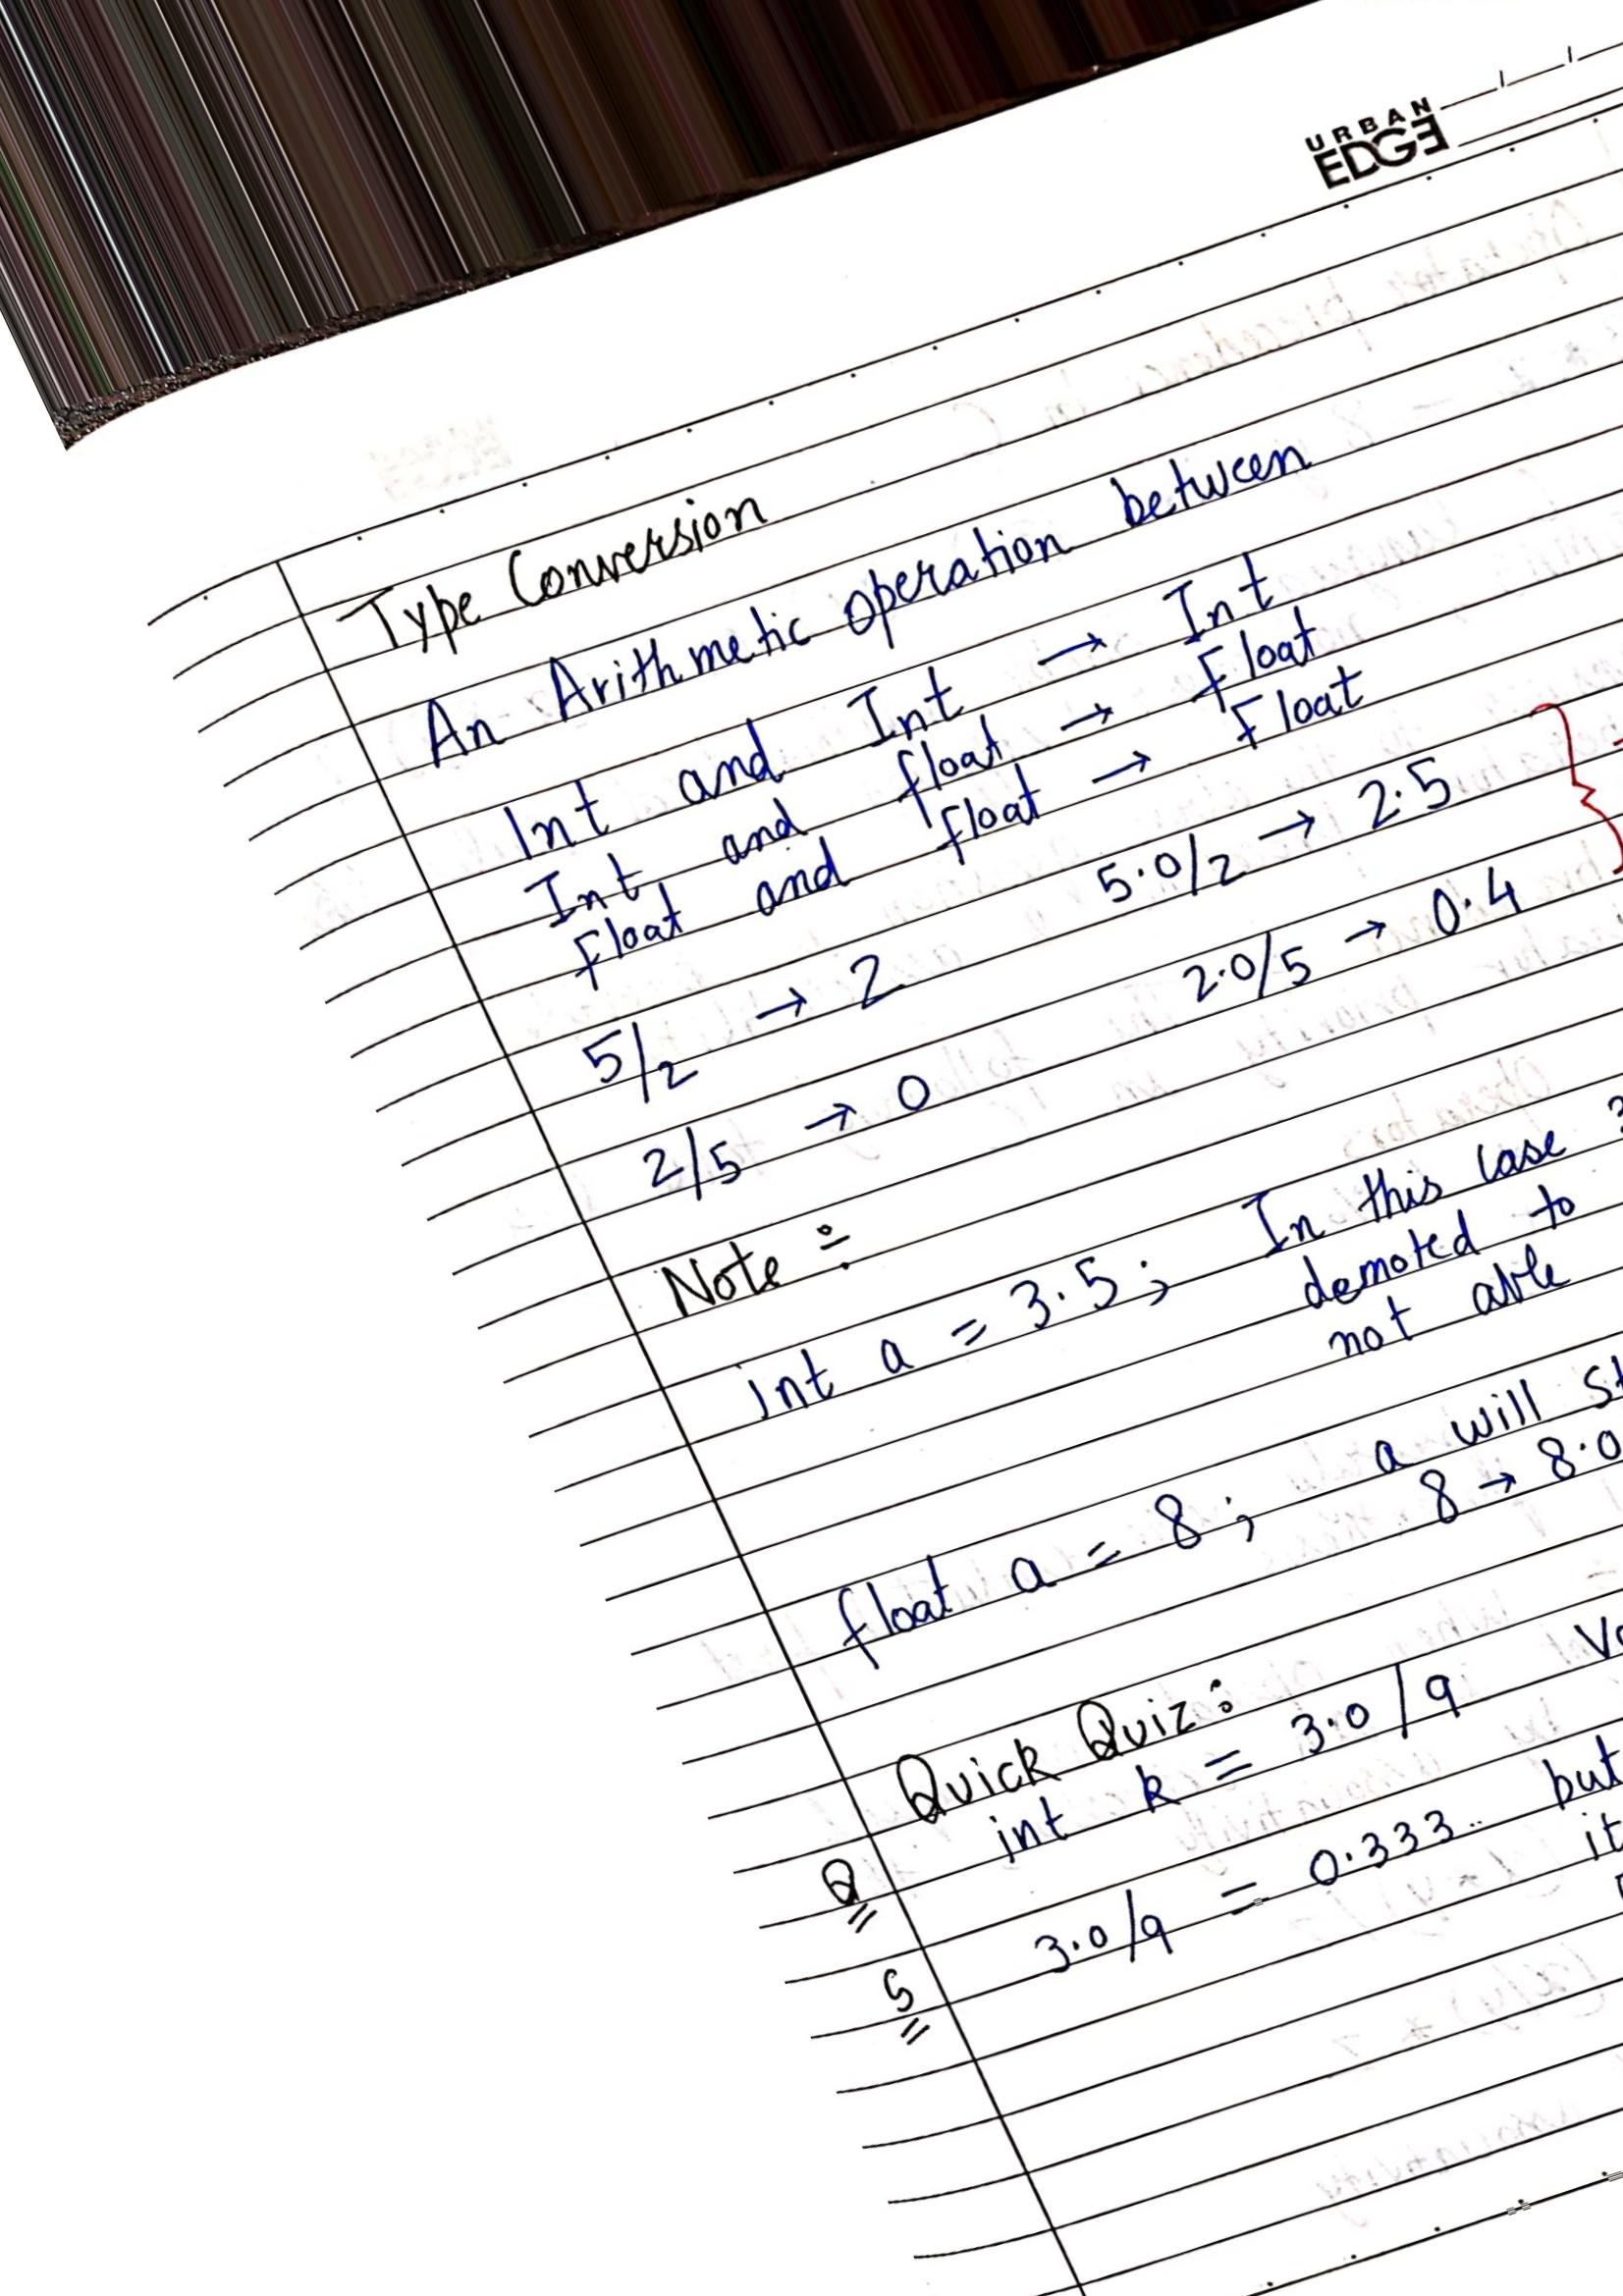 URBAN
EDGE
Type Conversion
An Arithmetic operation between
Int and Int → Int
Int and float → float
float and float → float
5/2 → 2 5.0/2 → 2.5
2/5 → 0 2.0/5 → 0.4
Note :-
int a = 3.5; In this case
demoted to
not able
float a = 8; a will
8 → 8.0
Quick Quiz:
Q int k = 3.0/9
S 3.0/9 = 0.333.. but
it